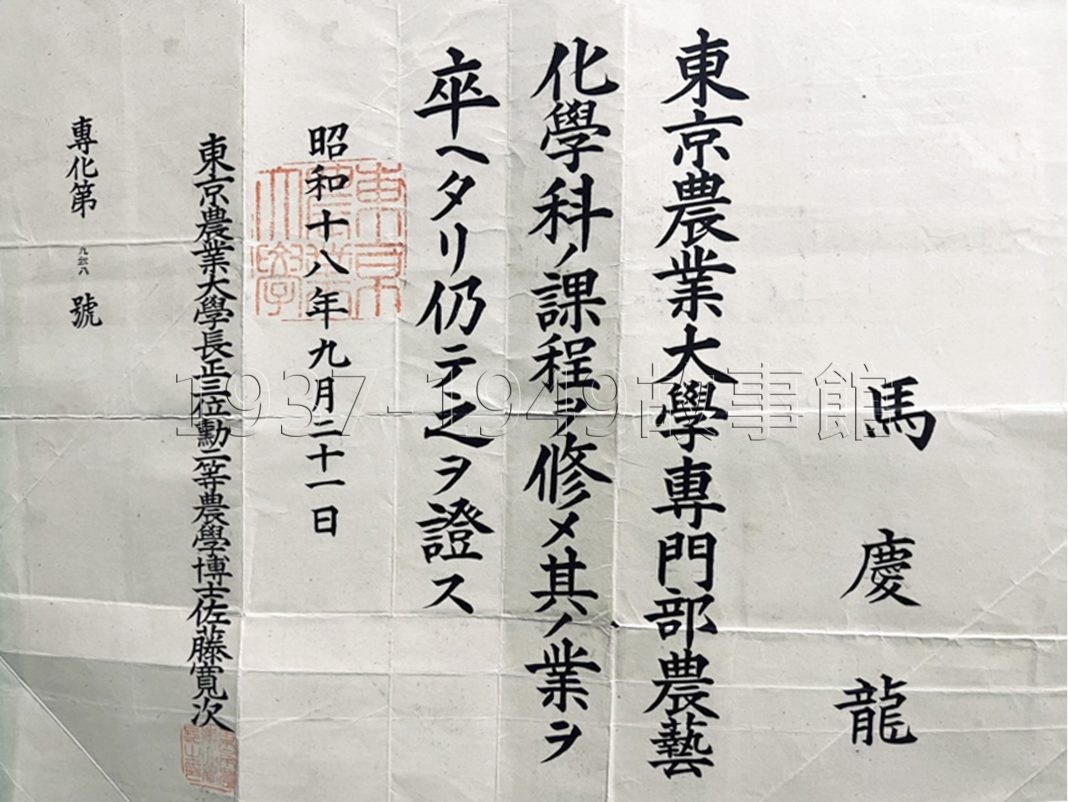 馬慶龍
東京農業大學専門部農藝
化學科ノ課程ヲ修メ其ノ業ヲ
卒ヘタリ仍テ之ヲ證ス
昭和十八年九月二十一日
東京農業大學
東京農業大學長正三位勳二等農學博士佐藤寬次
專化第 號
1937-1949故事館